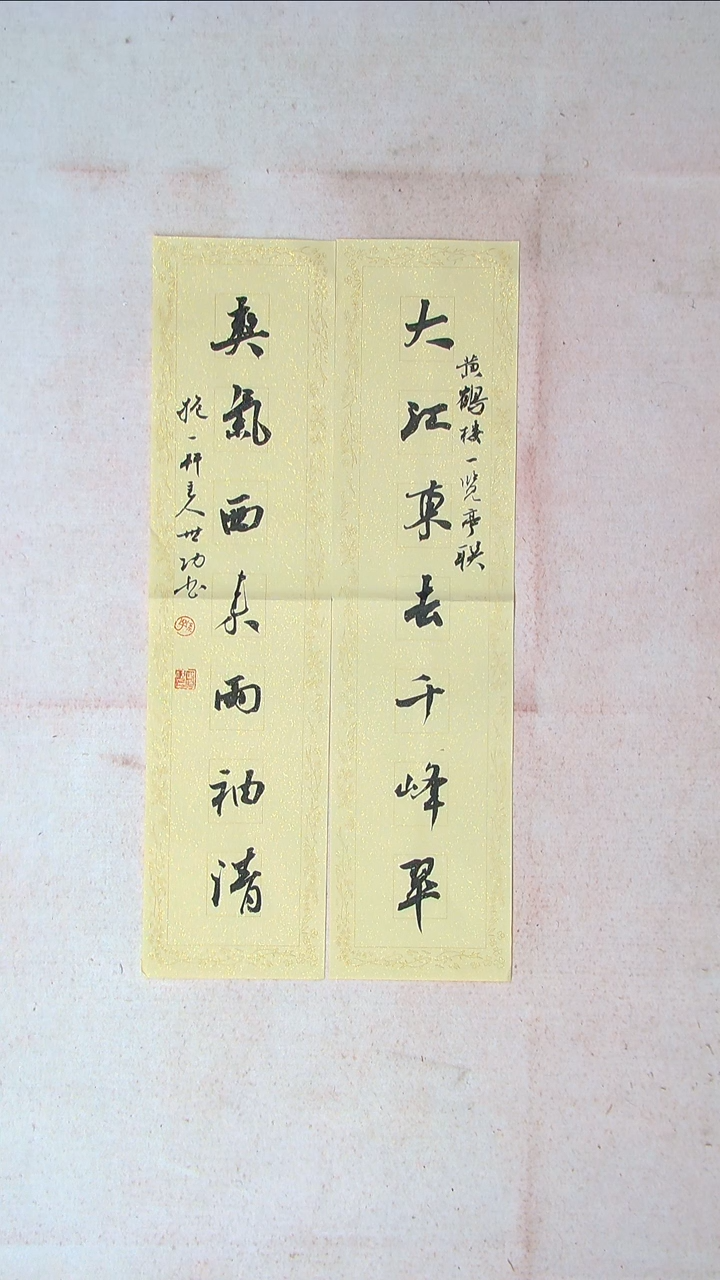 大江東去千峰翠
黄鹤楼一览亭联
爽氣西来兩袖清
抱一轩主人世功书